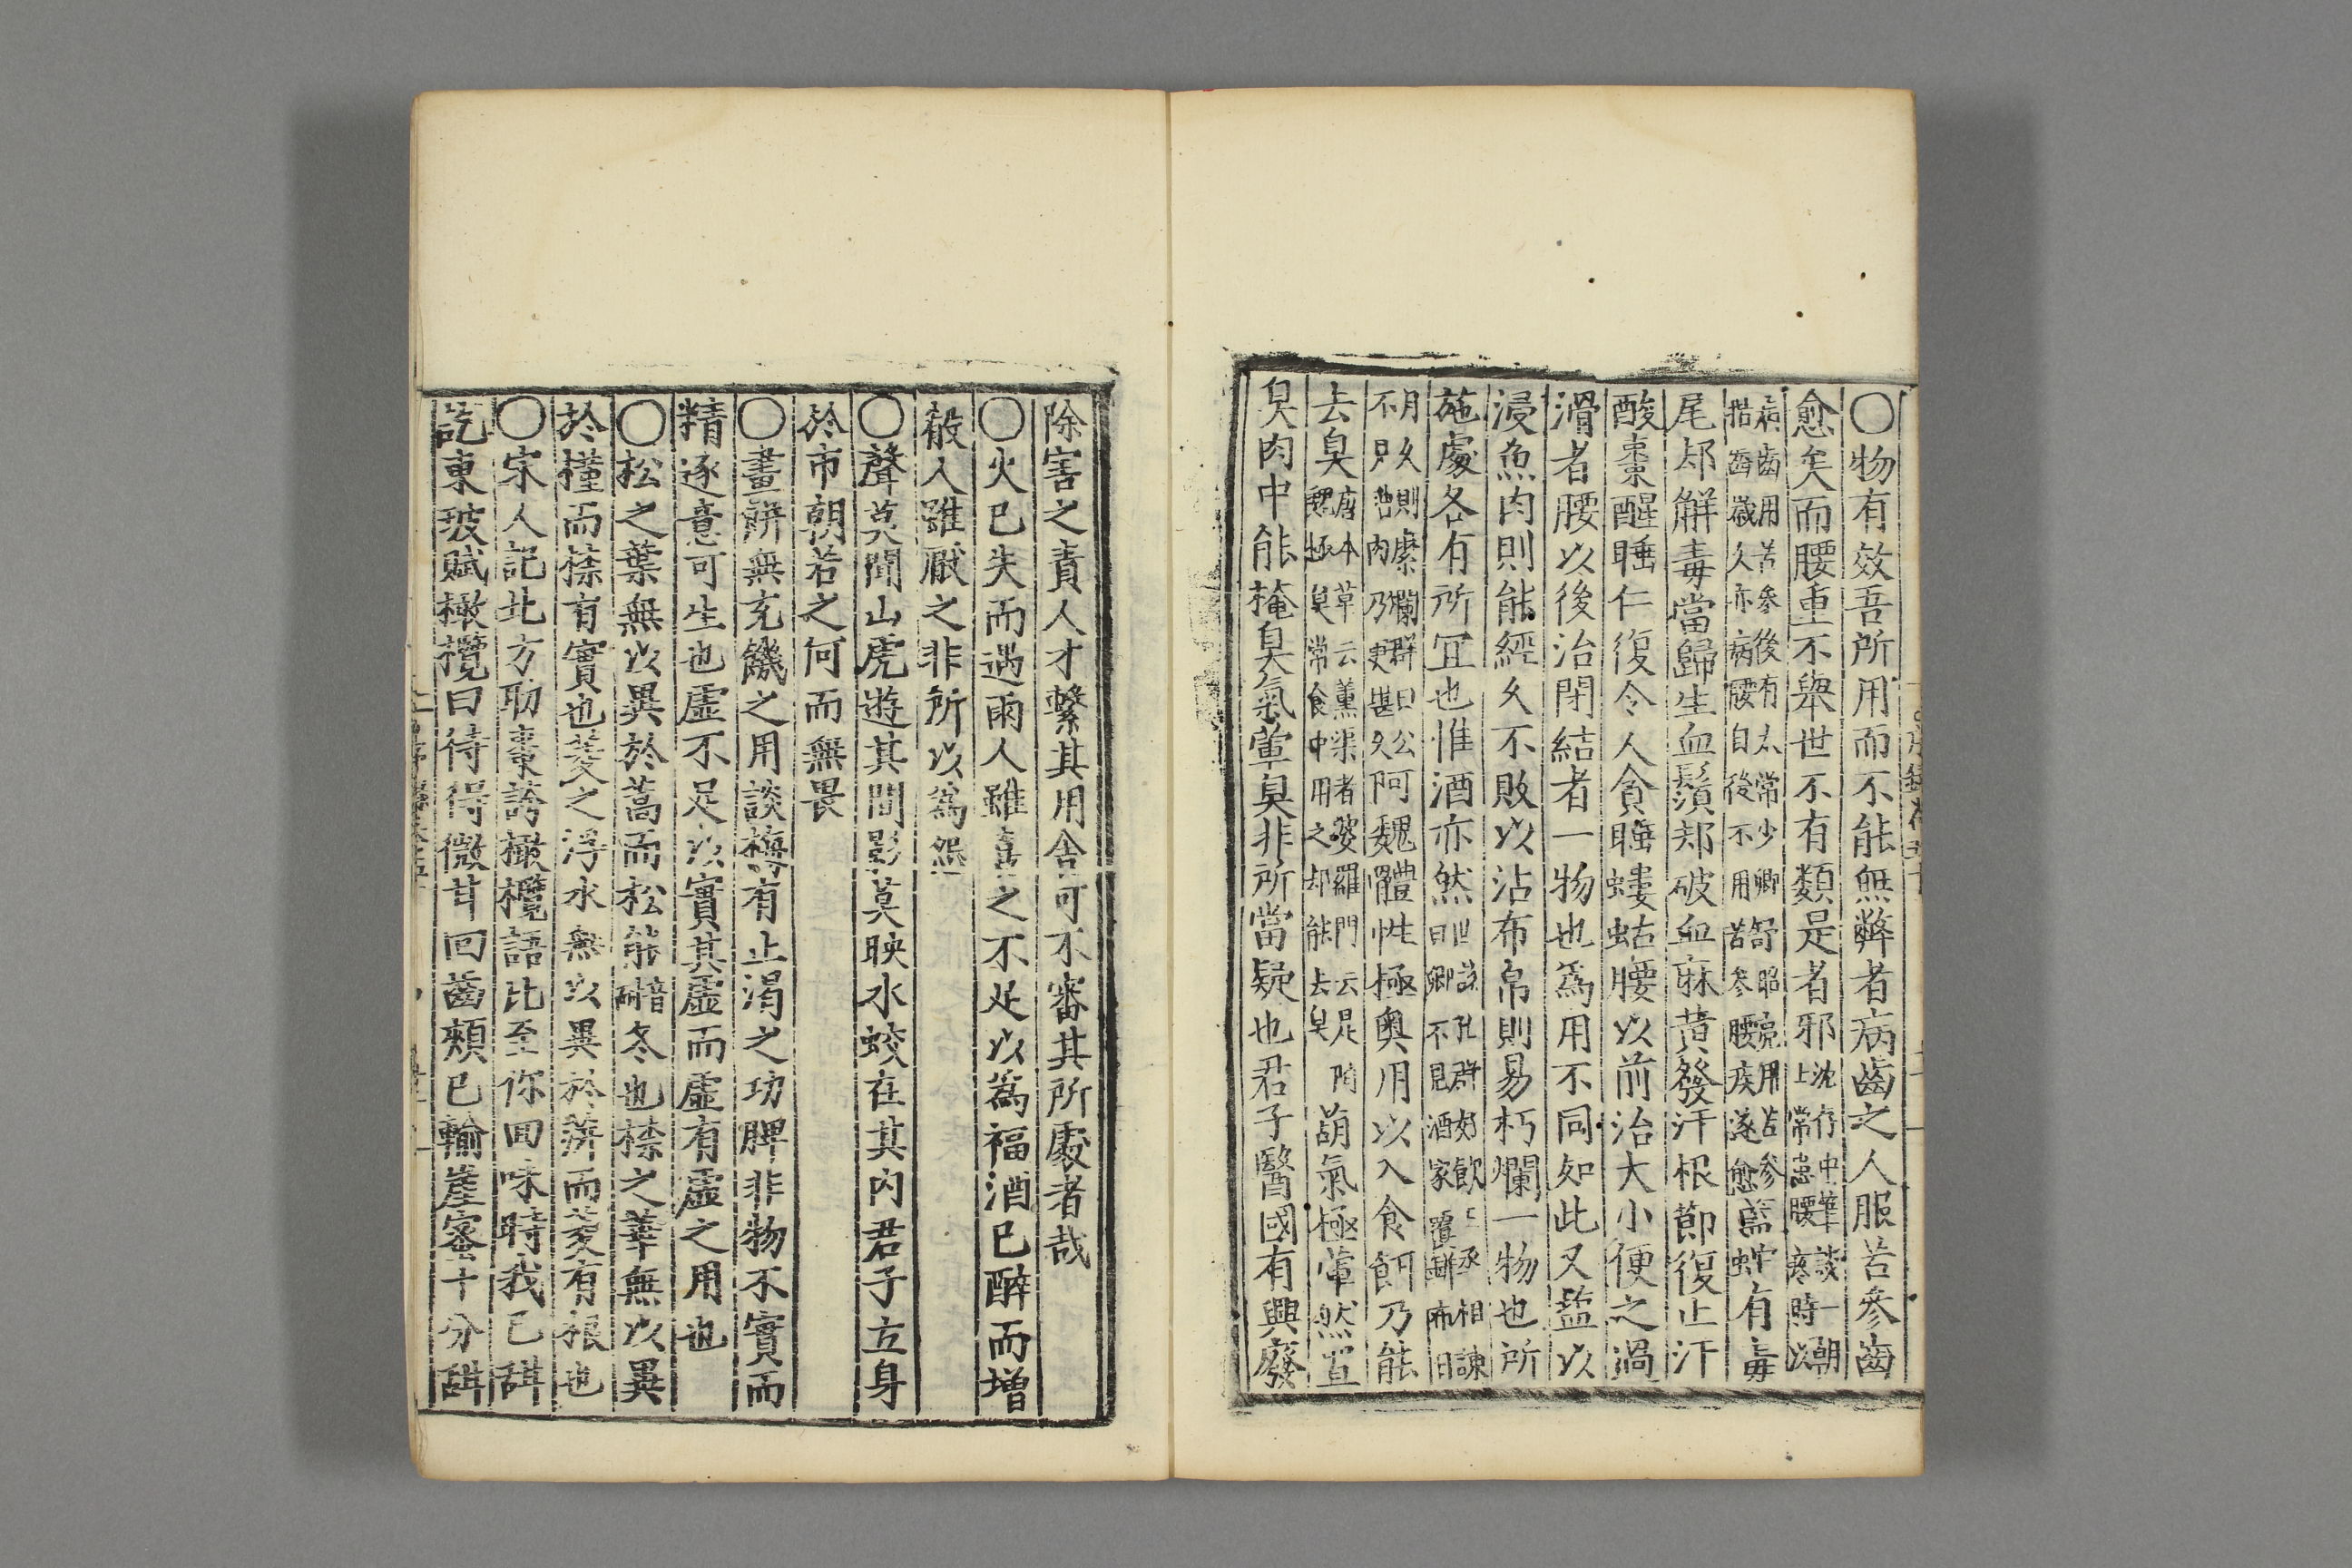 〇物有效吾所用而不能無弊者病齒之人服苦參齒
愈矣而腰重不舉世不有類是者邪沈存中筆談一朝士常患腰疼時以
病齒用苦參後有太常少卿舒昭亮用苦參
揩齒歲久亦病腰自後不用苦參腰疾遂愈藍蛇有毒
尾却解毒當歸生血鬚却破血麻黄發汗根節復止汗
酸棗醒睡仁復令人貪睡螻蛄腰以前治大小便之過
滑者腰以後治閉結者一物也為用不同如此又盐以
浸魚肉則能經久不敗以沾布帛則易朽爛一物也所
施處各有所宜也惟酒亦然世説孔群好飲王丞相諫
曰卿不見酒家覆瓿布日
月久則糜爛群曰公
不見糟肉乃更堪久阿魏體性極臭用以入食餌乃能
去臭唐本草云薰渠者婆羅門云是阿
魏極臭常食中用之却能去臭葫氣極葷然置
臭肉中能掩臭氣葷臭非所當疑也君子醫國有興廢
除害之責人才繫其用舍可不審其所處者哉
〇火已失而遇雨人雖喜之不足以為福酒已醉而增
殽人雖厭之非所以為怨
〇聲莫聞山虎遊其間影莫映水蛟在其内君子立身
於市朝若之何而無畏
〇畫餅無充饑之用談梅有止渴之功脾非物不實而
精逐意可生也虛不足以實其虛而虛有虛之用也
〇松之葉無以異於蒿而松能耐暗冬也㯶之華無以異
於槿而㯶有實也菱之浮水無以異於萍而菱有根也
〇宋人記北方聊棗誇橄欖語比至你回味時我已甜
訖東坡賦橄欖曰待得微甘回齒頰已輸崖蜜十分甜